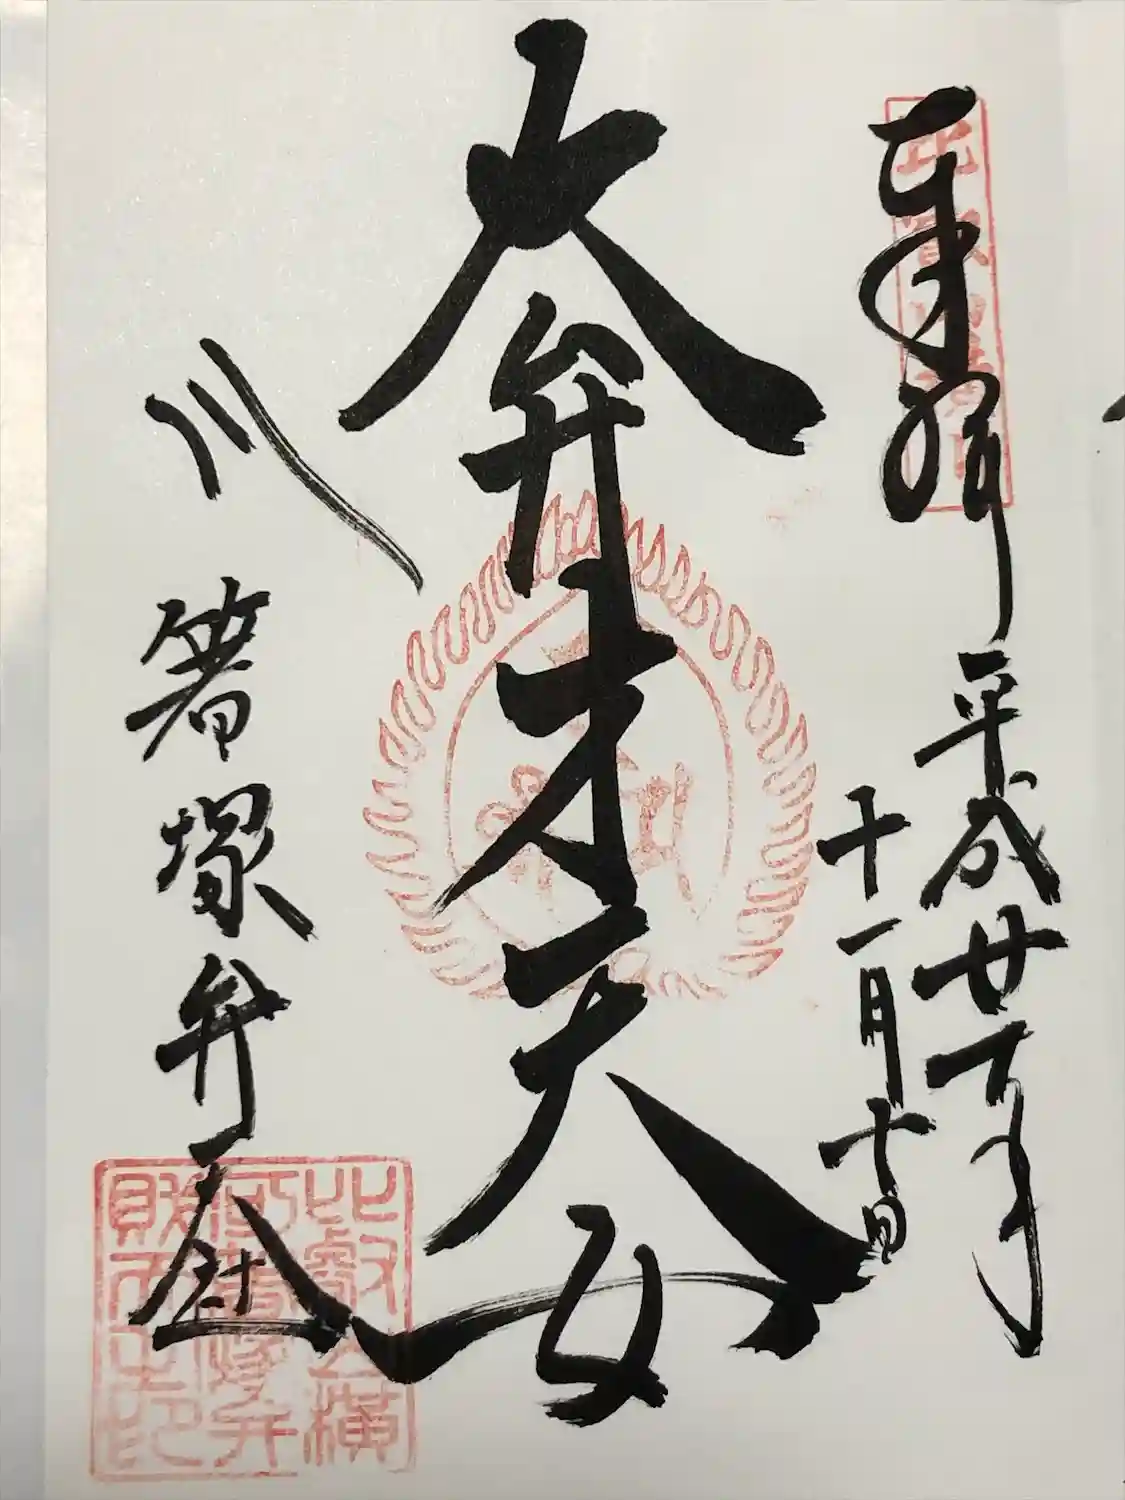 奉拝
平成廿一年
十一月十日
大弁才天女
川
箸塚弁天
比叡山横
河箸塚弁
財天之印